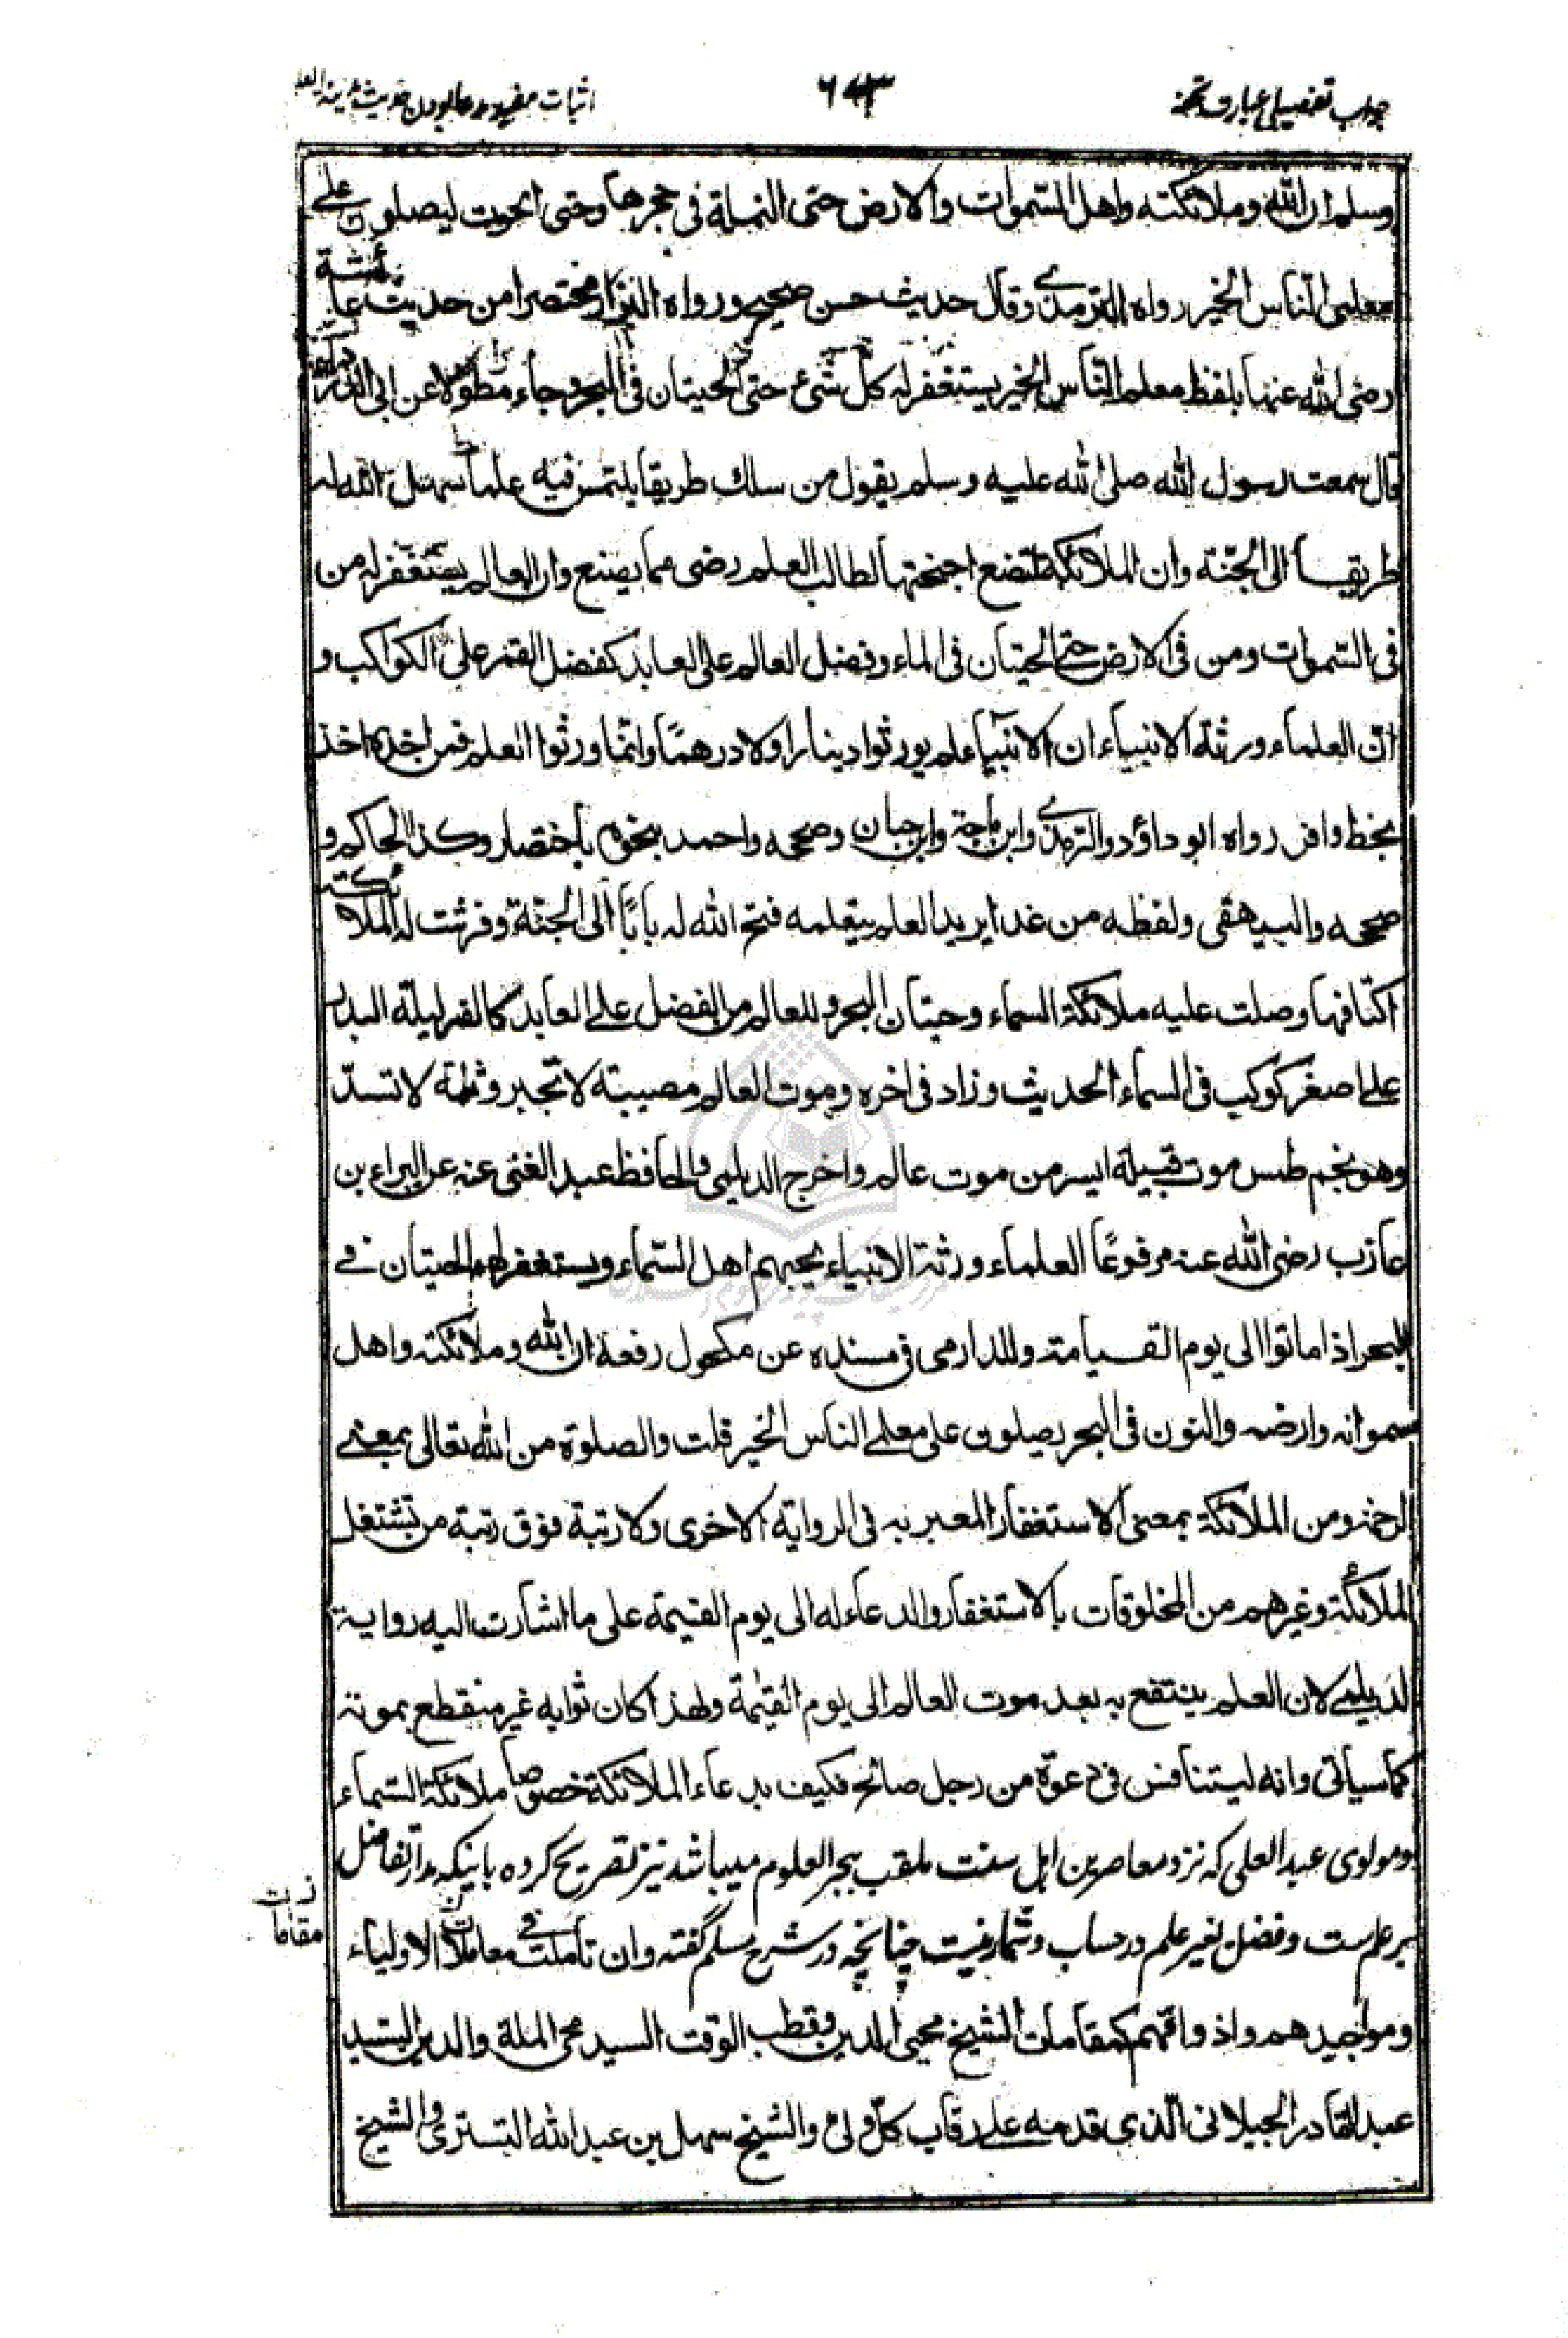 جواب تفصیلی عبارت تحفه
۶۴۳
اثبات مفید مدعا بودن حدیث مدینة العلم
وسلم ان الله وملائكته واهل السموات والارض حتى النملة فى حجرها وحتى الحوت ليصلون على
معلمى الناس الخير رواه الترمذى وقال حديث حسن صحيح ورواه البزار مختصرا من حديث عائشة
رضى الله عنها بلفظ معلم الناس الخير يستغفر له كل شئ حتى الحيتان فى البحر وجاء مطولا عن ابى الدرداء
قال سمعت رسول الله صلى الله عليه وسلم يقول من سلك طريقا يلتمس فيه علما سهل الله له
طريقا الى الجنة وان الملائكة لتضع اجنحتها لطالب العلم رضى مما يصنع وان العالم يستغفر له من
فى السموات ومن فى الارض حتى الحيتان فى الماء وفضل العالم على العابد كفضل القمر على الكواكب و
ان العلماء ورثة الانبياء ان الانبياء لم يورثوا دينارا ولا درهما وانما ورثوا العلم فمن اخذه اخذ
بحظ وافر رواه ابو داؤد والترمذى وابن ماجة وابن حبان وصححه واحمد بنحوه باختصار وكذا الحاكم و
صححه والبيهقى ولفظه من غدا يريد العلم يتعلمه فتح الله له بابا الى الجنة وفرشت له الملائكة
اكنافها وصلت عليه ملائكة السماء وحيتان البحر وللعالم من الفضل على العابد كالقمر ليلة البدر
على اصغر كوكب فى السماء الحديث وزاد فى اخره وموت العالم مصيبة لا تجبر وثلمة لا تسد
وهو نجم طمس موت قبيلة ايسر من موت عالم واخرج الديلمى والحافظ عبد الغنى عنه عن البراء بن
عازب رضى الله عنه مرفوعا العلماء ورثة الانبياء يحبهم اهل السماء ويستغفر لهم الحيتان فى
البحر اذا ماتوا الى يوم القيامة وللدارمى فى مسنده عن مكحول رفعه ان الله وملائكته واهل
سمواته وارضه والنون فى البحر يصلون على معلمى الناس الخير قلت والصلوة من الله تعالى بمعنى
الرحمة ومن الملائكة بمعنى الاستغفار المعبر به فى الرواية الاخرى ولا رتبة فوق رتبة من تشتغل
الملائكة وغيرهم من المخلوقات بالاستغفار والدعاء له الى يوم القيمة على ما اشارت اليه رواية
الديلمى لان العلم ينتفع به بعد موت العالم الى يوم القيمة ولهذا كان ثوابه غير منقطع بموته
كما سياتى وانه ليتنافس فى دعوة من رجل صالح فكيف بدعاء الملائكة خصوصا ملائكة السماء
ومولوی عبد العلی که نزد معاصرین اهل سنت ملقب ببحر العلوم میباشد نیز تصریح کرده باینکه مدار تفاضل
بر علم ست وفضل بغیر علم در حساب وشمار نیست چنانچه در شرح مسلم گفته وان تاملت فى معاملات الاولياء
مقامات
ومواجيدهم واذواقهم كمقامات الشيخ محيى الدين وقطب الوقت السيد محى الملة والدين السيد
عبد القادر الجيلانى الذى قدمه على رقاب كل ولى والشيخ سهل بن عبد الله التسترى والشيخ